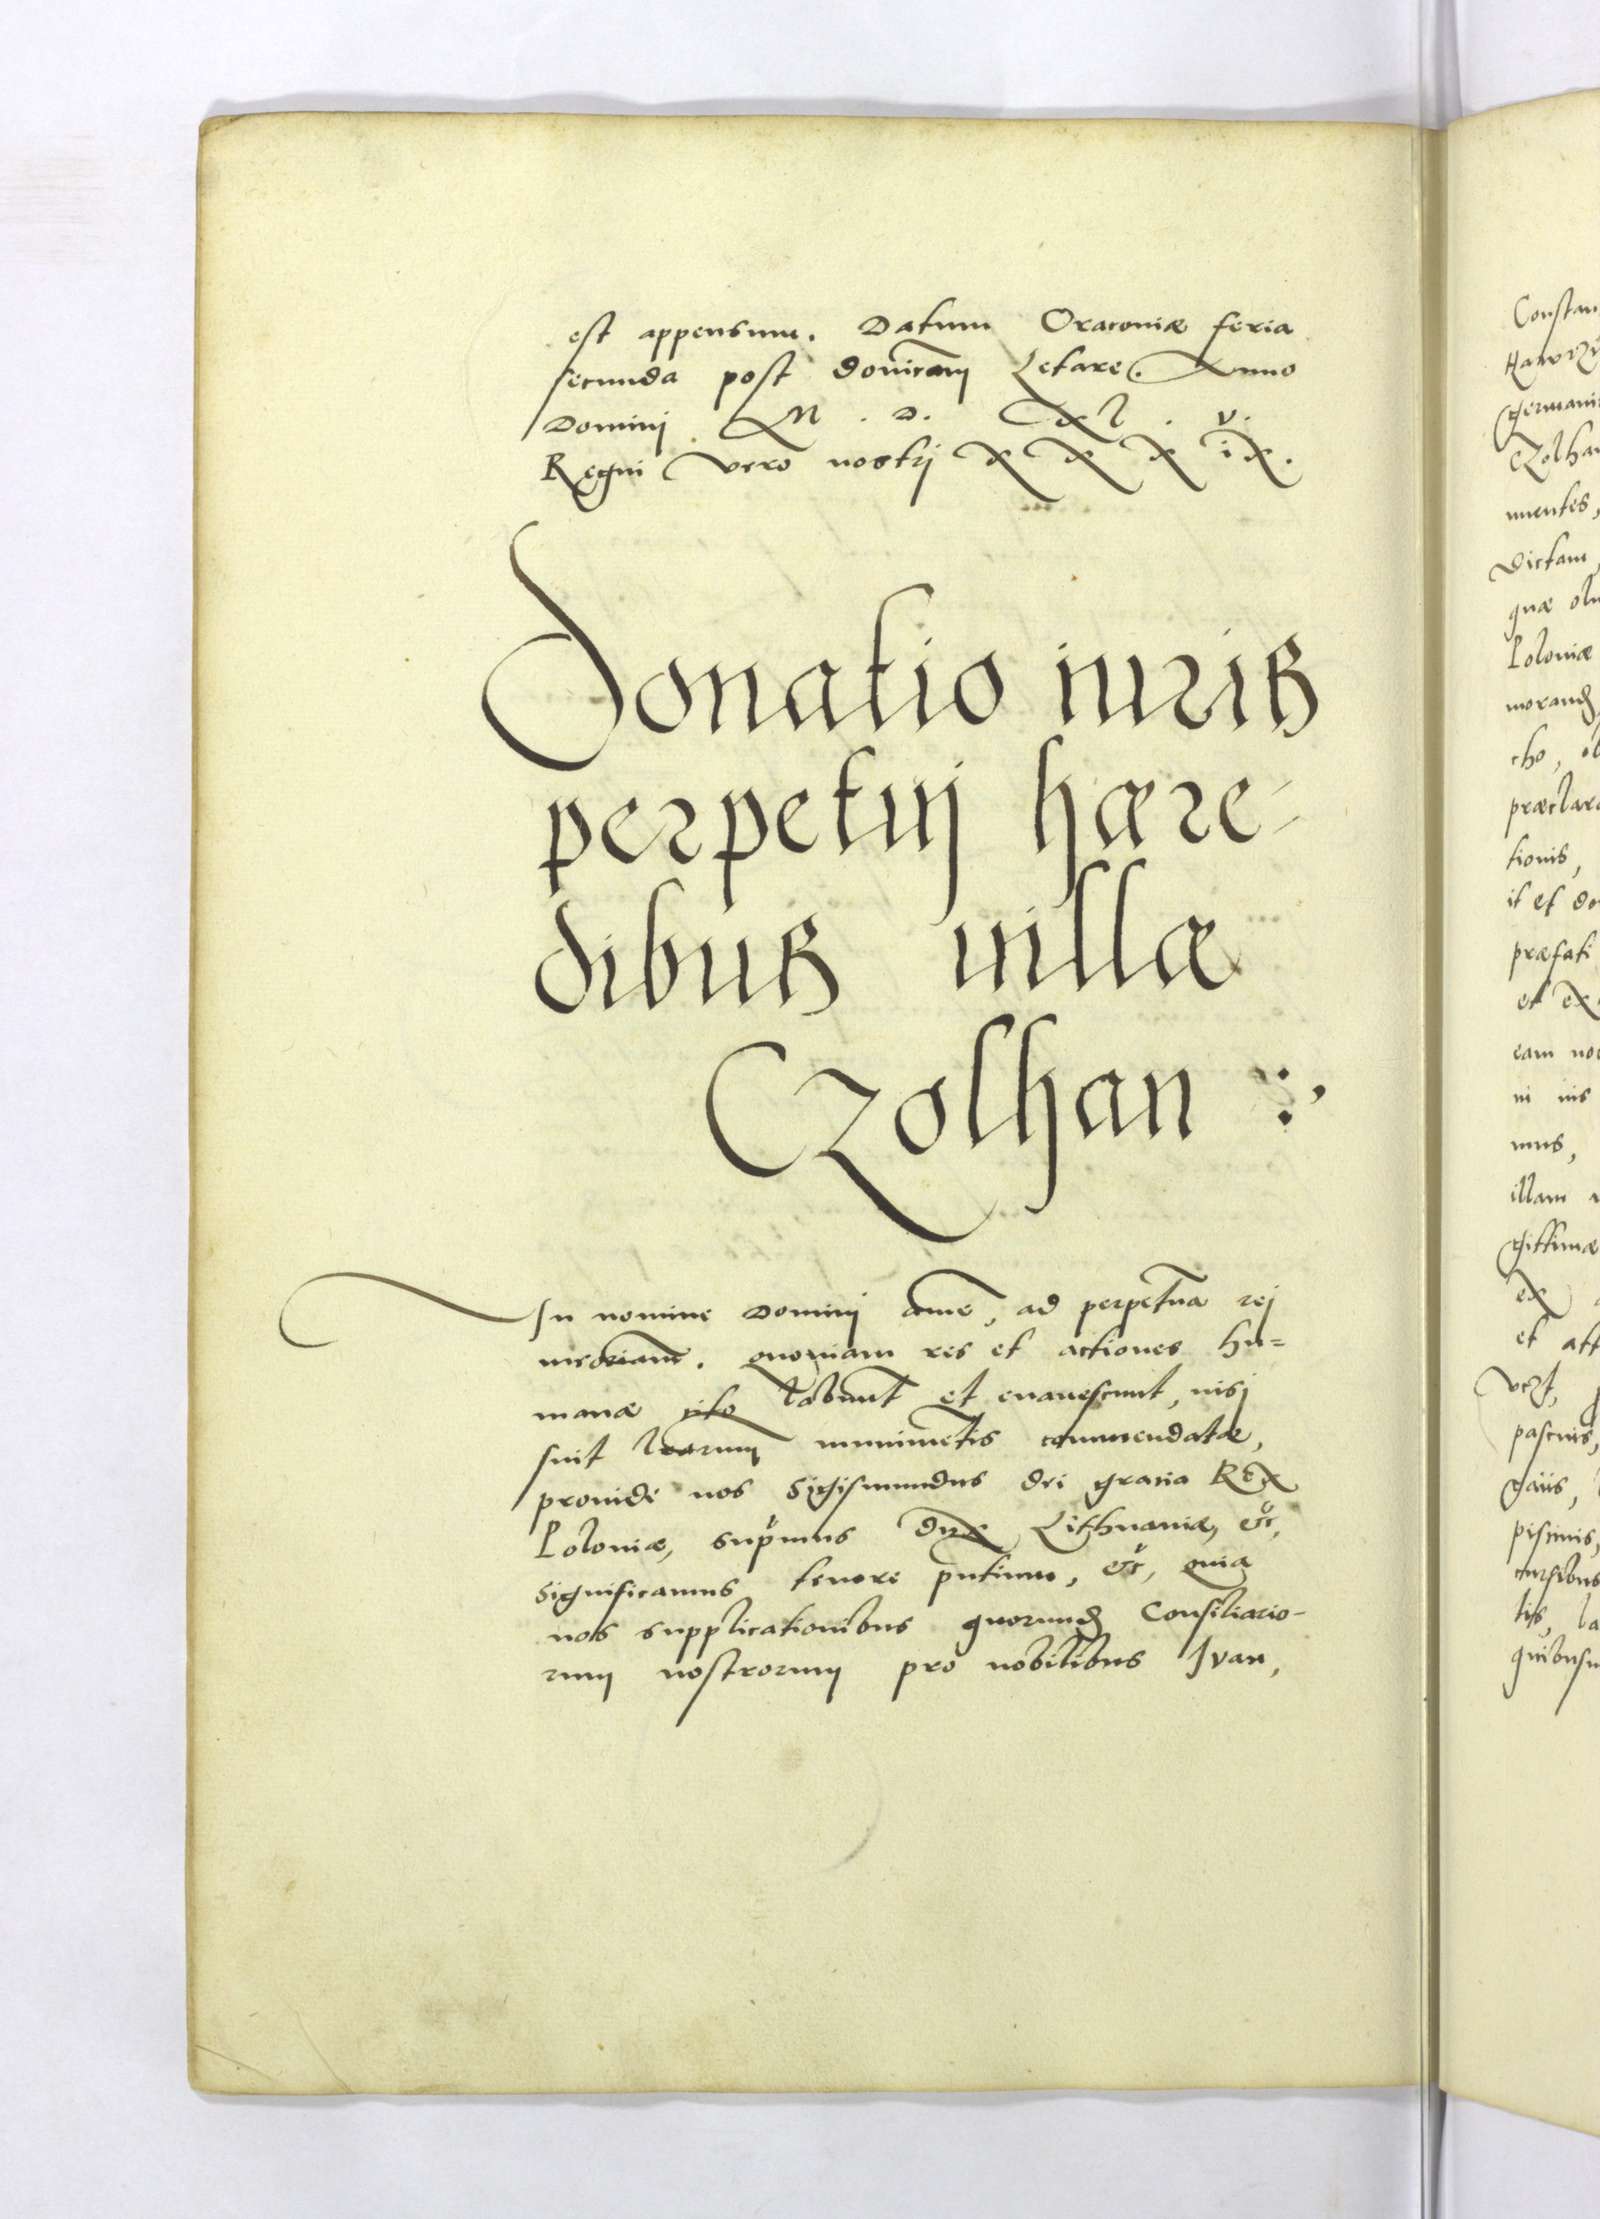 est appensum. Datum Cracoviæ feria
secunda post donicam Letare. Anno
Domini M . D . Cxl . v .
Regni vero nostrj x x x ix.
Donatio iuris
perpetuj hære-
dibus uillæ
Czolhan :,
In nomine Dominj ame, ad perpetua rej
meoriam. Quoniam res et actiones hu=
manæ cito labunt et euanescunt, nisj
sint lrarum munimetis commendatæ,
prouide nos Sigismundus dei gracia REX
Poloniæ, supmus dux Lithuaniæ, &c,
significamus tenore pntium, &c, quia
nos supplicationibus quorund Consiliario-
rum nostrorum pro nobilibus Ivan,
Constan
Hawrzÿ
germani
Czolhan
nuentes,
dictam,
quæ oli
Poloniæ
morand
cho, ob
præclara
tionis,
it et do
præfati
et ex
eam no
in iis
mus,
illam
gittimæ
ex
et att
vert,
pascuis,
gaiis,
piscinis,
cursibus
tis, la
quibusu